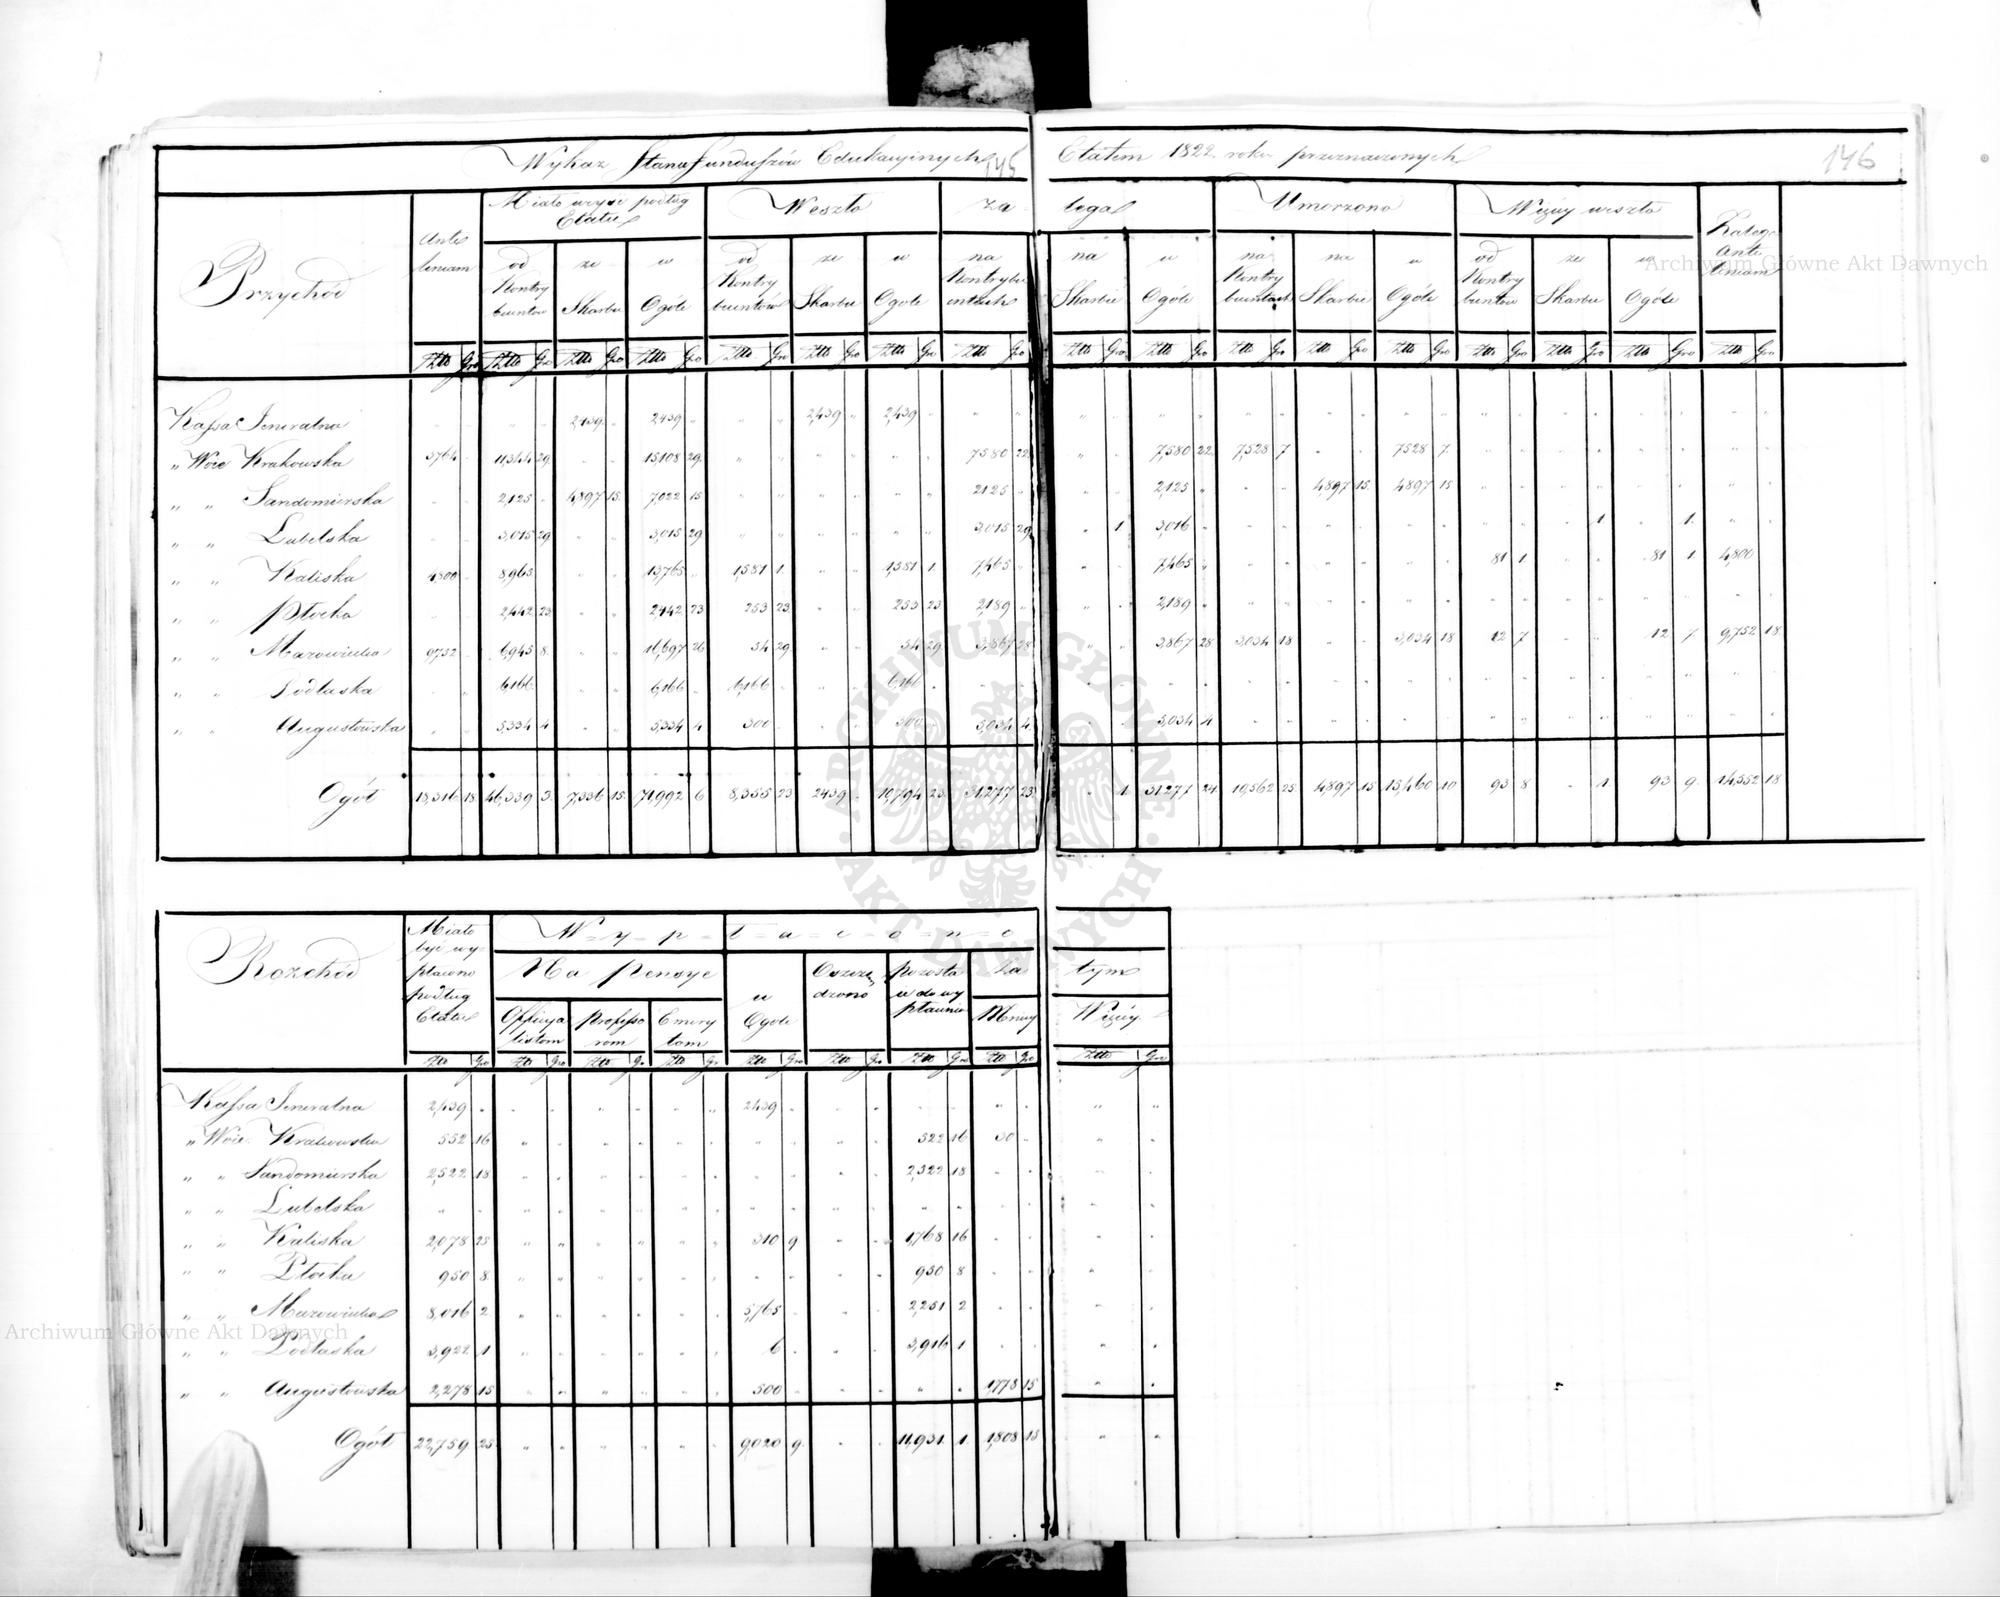 Wykaz Stanu Funduszów Edukacyinych Etatem 1822 roku przeznaczonych
145 146
Przychód
Ante leniam
Miało wyść podług Etatu
Weszło
Zalega
Umorzono
Więcey weszło
od Kontrybuentów ze Skarbu w Ogóle
od Kontrybuentów ze Skarbu w Ogóle
na Kontrybuentach na Skarbie w Ogóle
na Kontrybuentach na Skarbie w Ogóle
od Kontrybuentów ze Skarbu w Ogóle
Kassa Jeneralna 2,439 2,439 2,439 2,439
" Wdz Krakowska 3764 11,344 29 15,108 29 7580 22 7,580 22 7,528 7 7528 7
" " Sandomierska 2,125 4,897 15 7,022 15 2125 2,125 4,897 15 4897 15
" " Lubelska 3,015 29 3,015 29 3,015 29 1 3,016 1 1
" " Kaliska 4,800 8,965 13,765 1,581 1 1,581 1 7,465 7,465 81 1 81 1 4,800
" " Płocka 2,442 23 2,442 23 253 23 253 23 2,189 2,189
" " Mazowiecka 9752 6,945 8 16,697 26 34 29 34 29 3,867 28 3,867 28 3,034 18 3,034 18 12 7 12 7 9,752 18
" " Podlaska 6,166 6,166 6,166 6,166
" " Augustowska 5,334 4 5,334 4 300 300 5,034 4 5,034 4
Ogół 18,316 18 46,339 3 7,336 15 71,992 6 8,355 23 2439 10,794 23 31,277 23 1 31,277 24 10,562 25 4,897 15 15,460 10 93 8 1 93 9 14,552 18
Rozchód
Miało być wypłacono podług Etatu
W-y-p-ł-a-c-o-n-o
Na Pensye
Officyalistom Professorom Emerytom
w Ogóle
Oszczędzono
Pozostaie do wypłacenia
Zatym
Mniey Więcey
Kassa Jeneralna 2,439 2439
" Wdz Krakowska 552 16 522 16 30
" " Sandomierska 2,522 18 2,522 18
" " Lubelska
" " Kaliska 2,078 25 310 9 1,768 16
" " Płocka 950 8 950 8
" " Mazowiecka 8,016 2 5,765 2,251 2
" " Podlaska 3,922 1 6 3,916 1
" " Augustowska 2,278 15 500 1,778 15
Ogół 22,759 25 9,020 9 11,931 1 1,808 15
Archiwum Główne Akt Dawnych
Archiwum Główne Akt Dawnych
ARCHIWUM GŁÓWNE AKT DAWNYCH